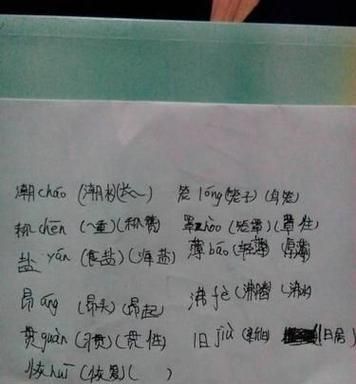 潮cháo (潮水)(长~) 笼lóng(笼子)(鸟笼)
称chēn (~重)(称赞) 罩zhào(笼罩)(罩住)
盐 yán (食盐)(海盐) 薄báo(轻薄)(厚薄)
昂áng (昂头)(昂起) 沸fè(沸腾)(沸水)
贯guàn (习惯)(贯性) 旧jiù (新旧) (旧居)
恢huī (恢复)( )